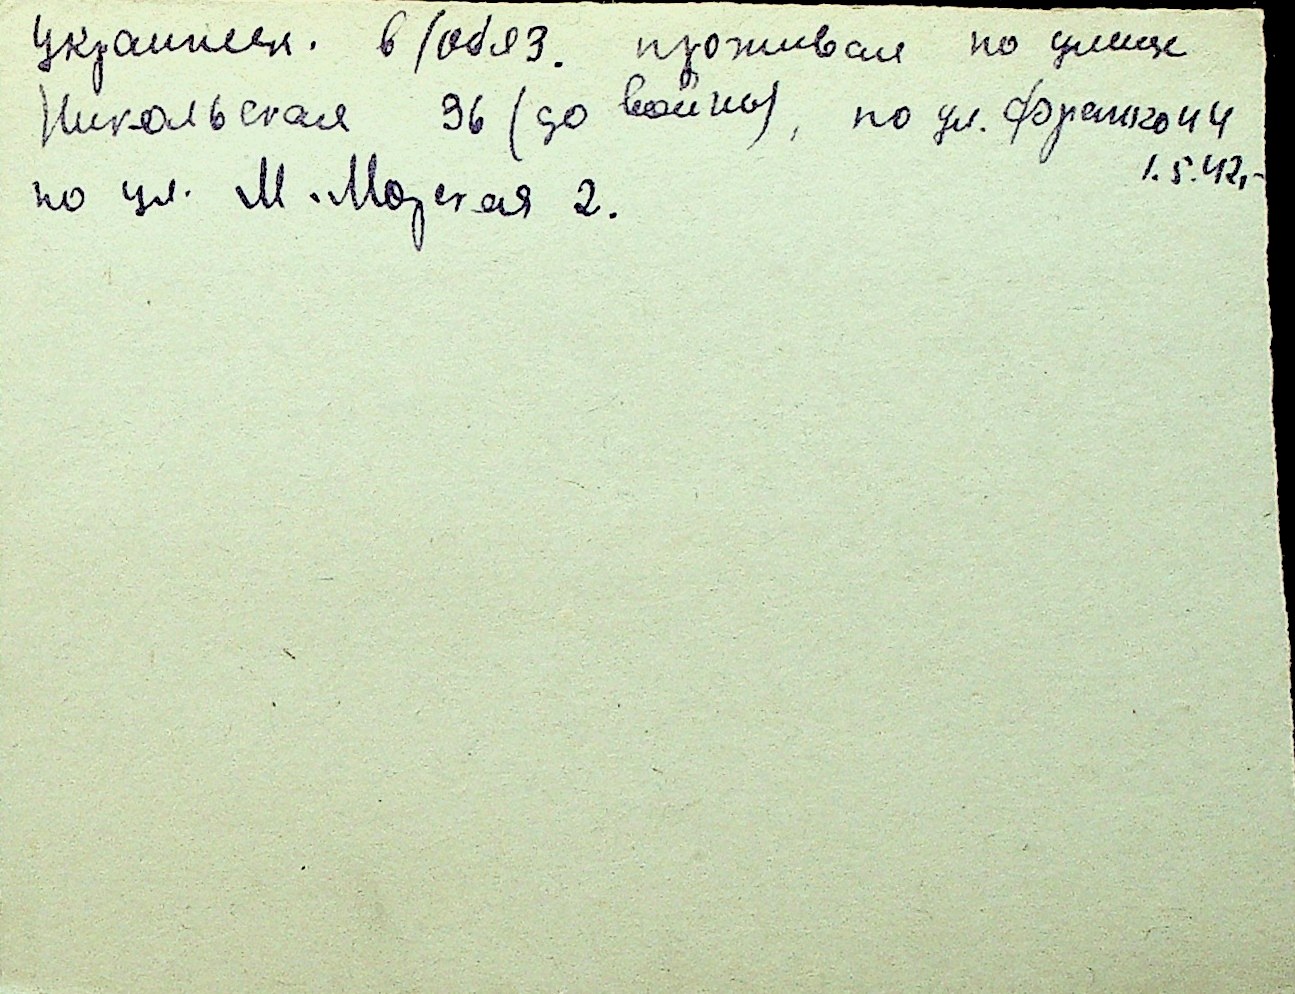 украинец. в/обяз. проживал по улице
Никольская 96 (до войны), по ул. Франко 44
1.5.42,-
по ул. М.Морская 2.